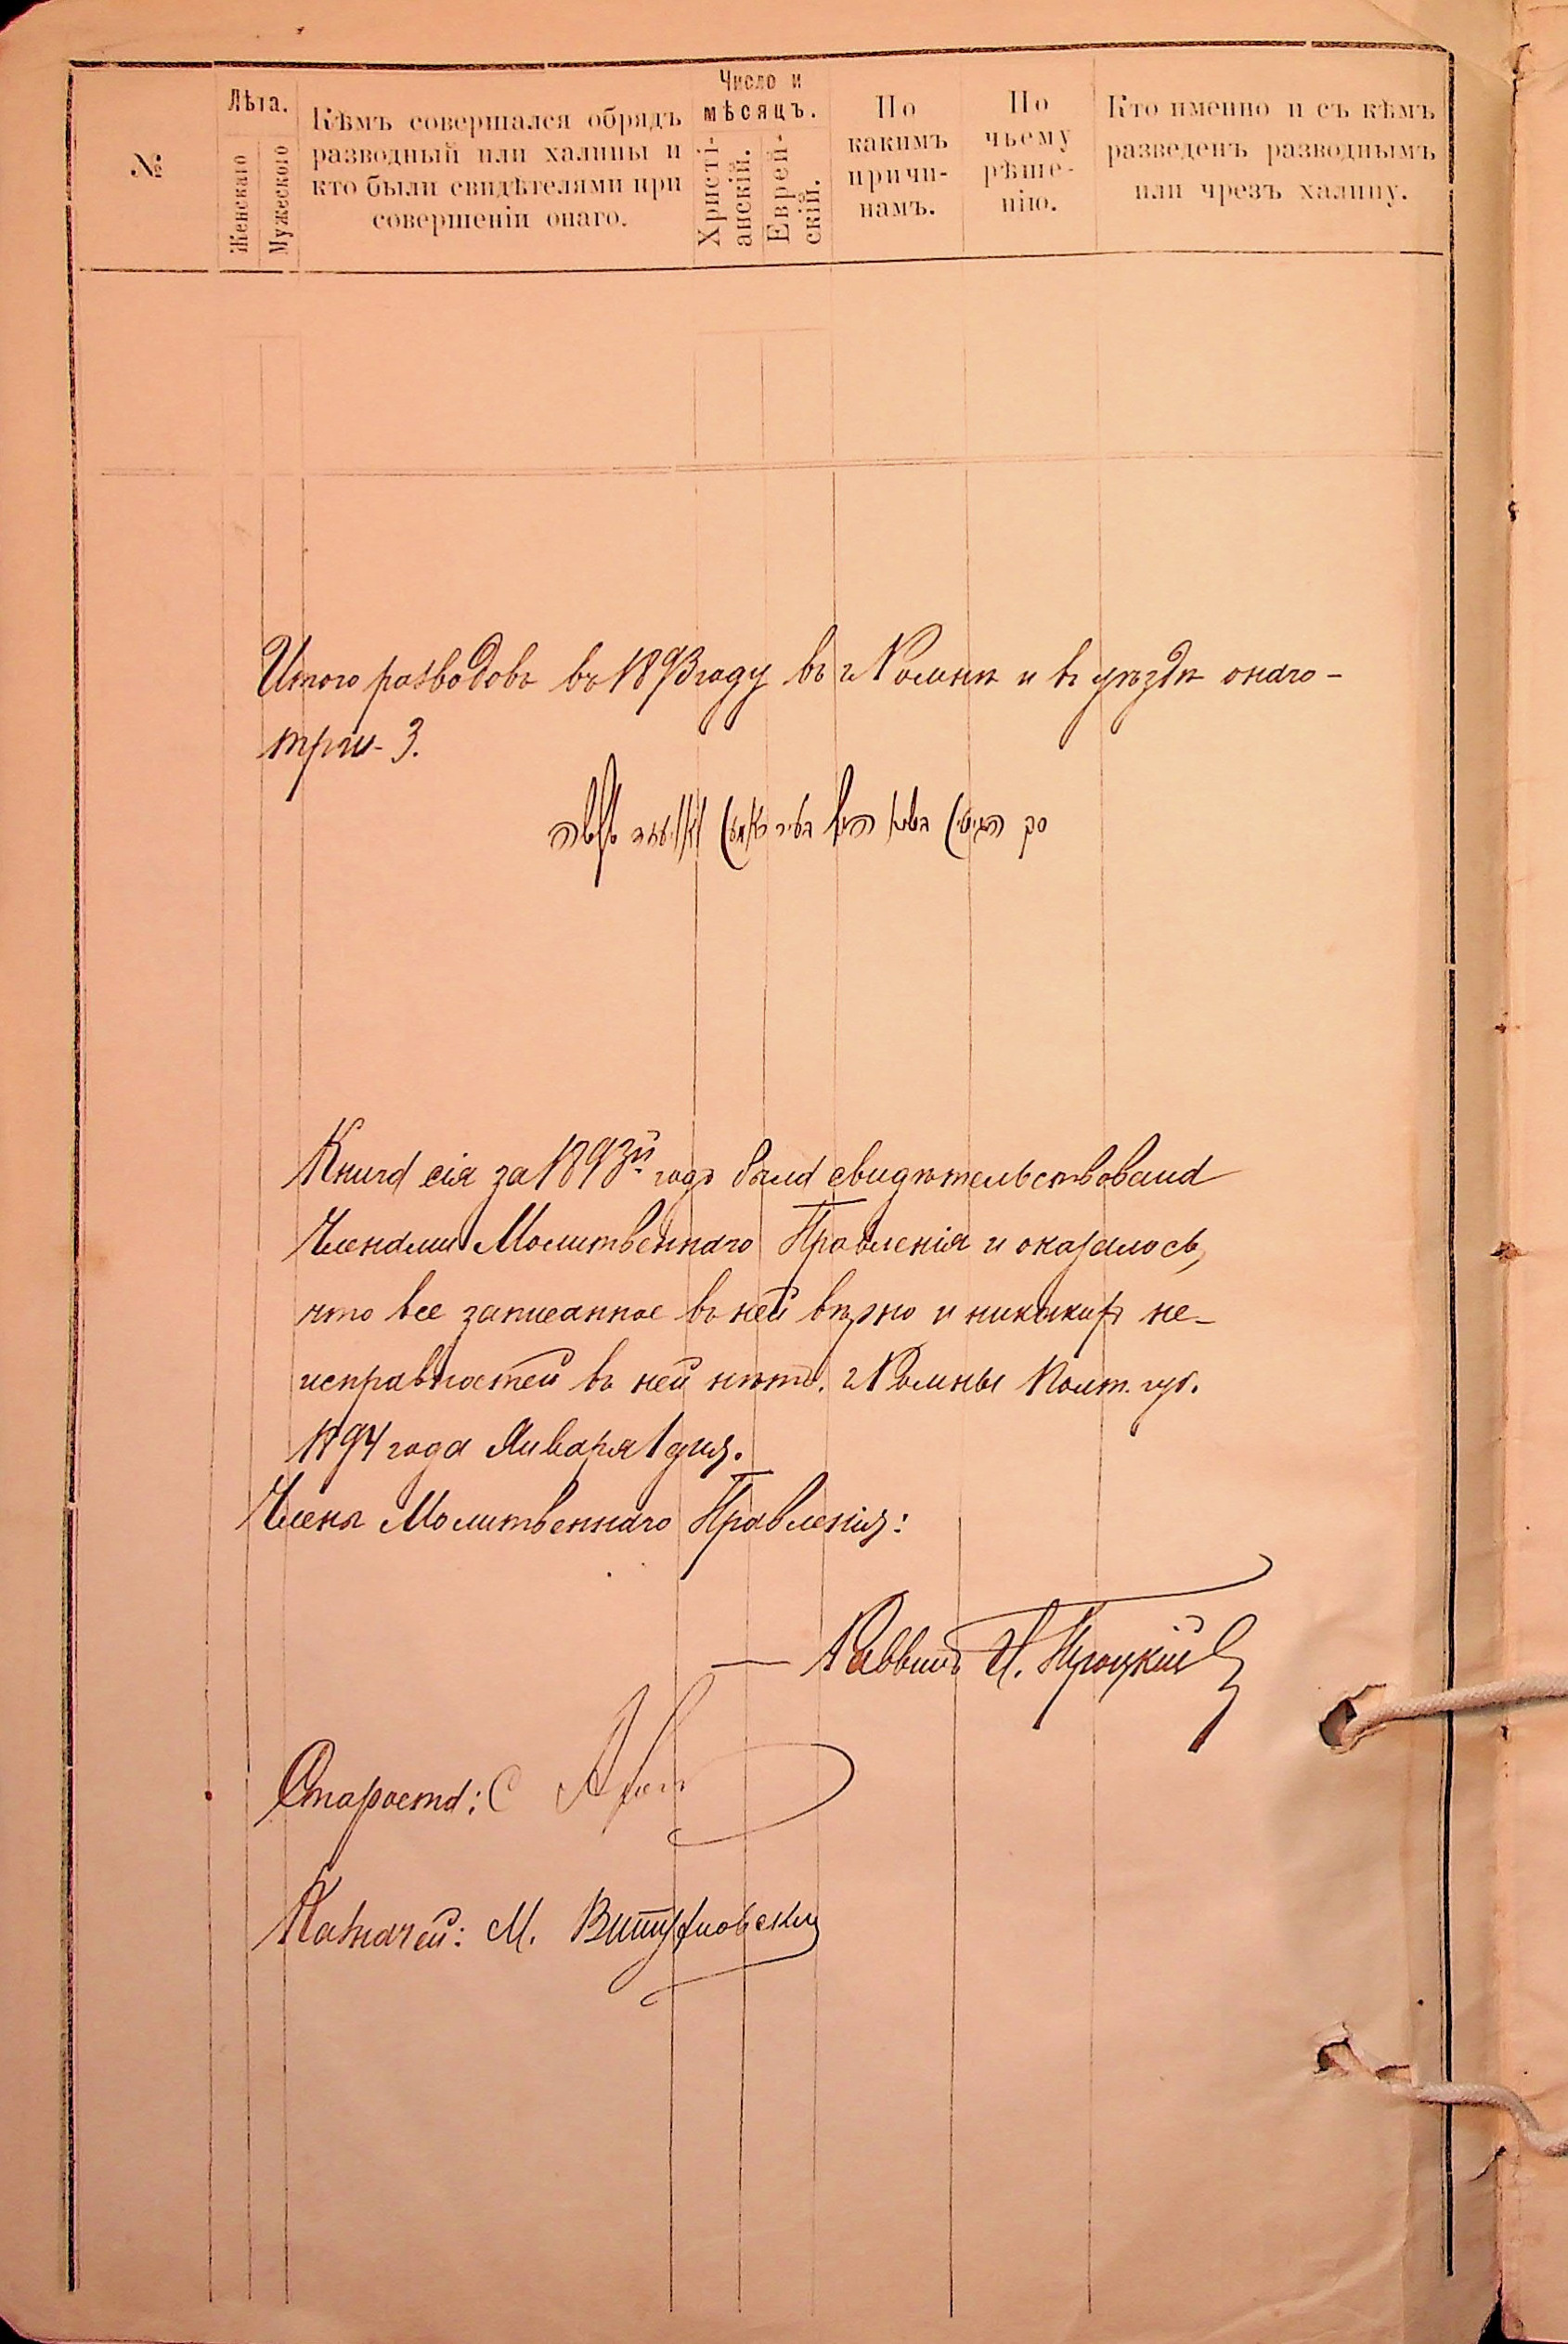 №
Лѣта.
Женскаго
Мужескаго
Кѣмъ совершался обрядъ
разводный или халицы и
кто были свидѣтелями при
совершеніи онаго.
Число и
мѣсяцъ.
Христі-
анскій.
Еврей-
скій.
По
какимъ
причи-
намъ.
По
чьему
рѣше-
нію.
Кто именно и съ кѣмъ
разведенъ разводнымъ
или чрезъ халицу.
Итого разводовъ въ 1893 году въ г Ромнѣ и въ уѣздѣ онаго -
три - 3.
סך
Книга сія за 1893й годъ была свидѣтельствована
Членами Молитвеннаго Правленія и оказалось,
что все записанное въ ней вѣрно и никакихъ не-
исправностей въ ней нѣтъ. г Ромны Полт. губ.
1894 года Января 1 дня.
Члены Молитвеннаго Правленія:
— Раввинъ И. Троцкій
Староста: С
Казначей: М.